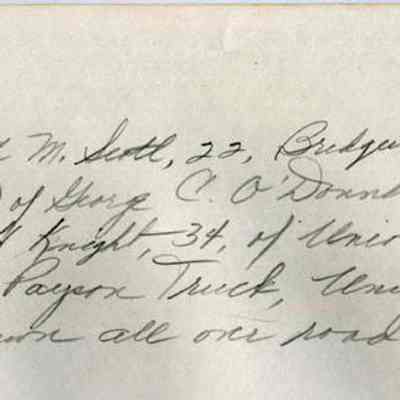 M. Scott, 22, Bridgew
of George C. O'Donne
Knight, 34, of Unio
Payson Truck, Uni
own all over road